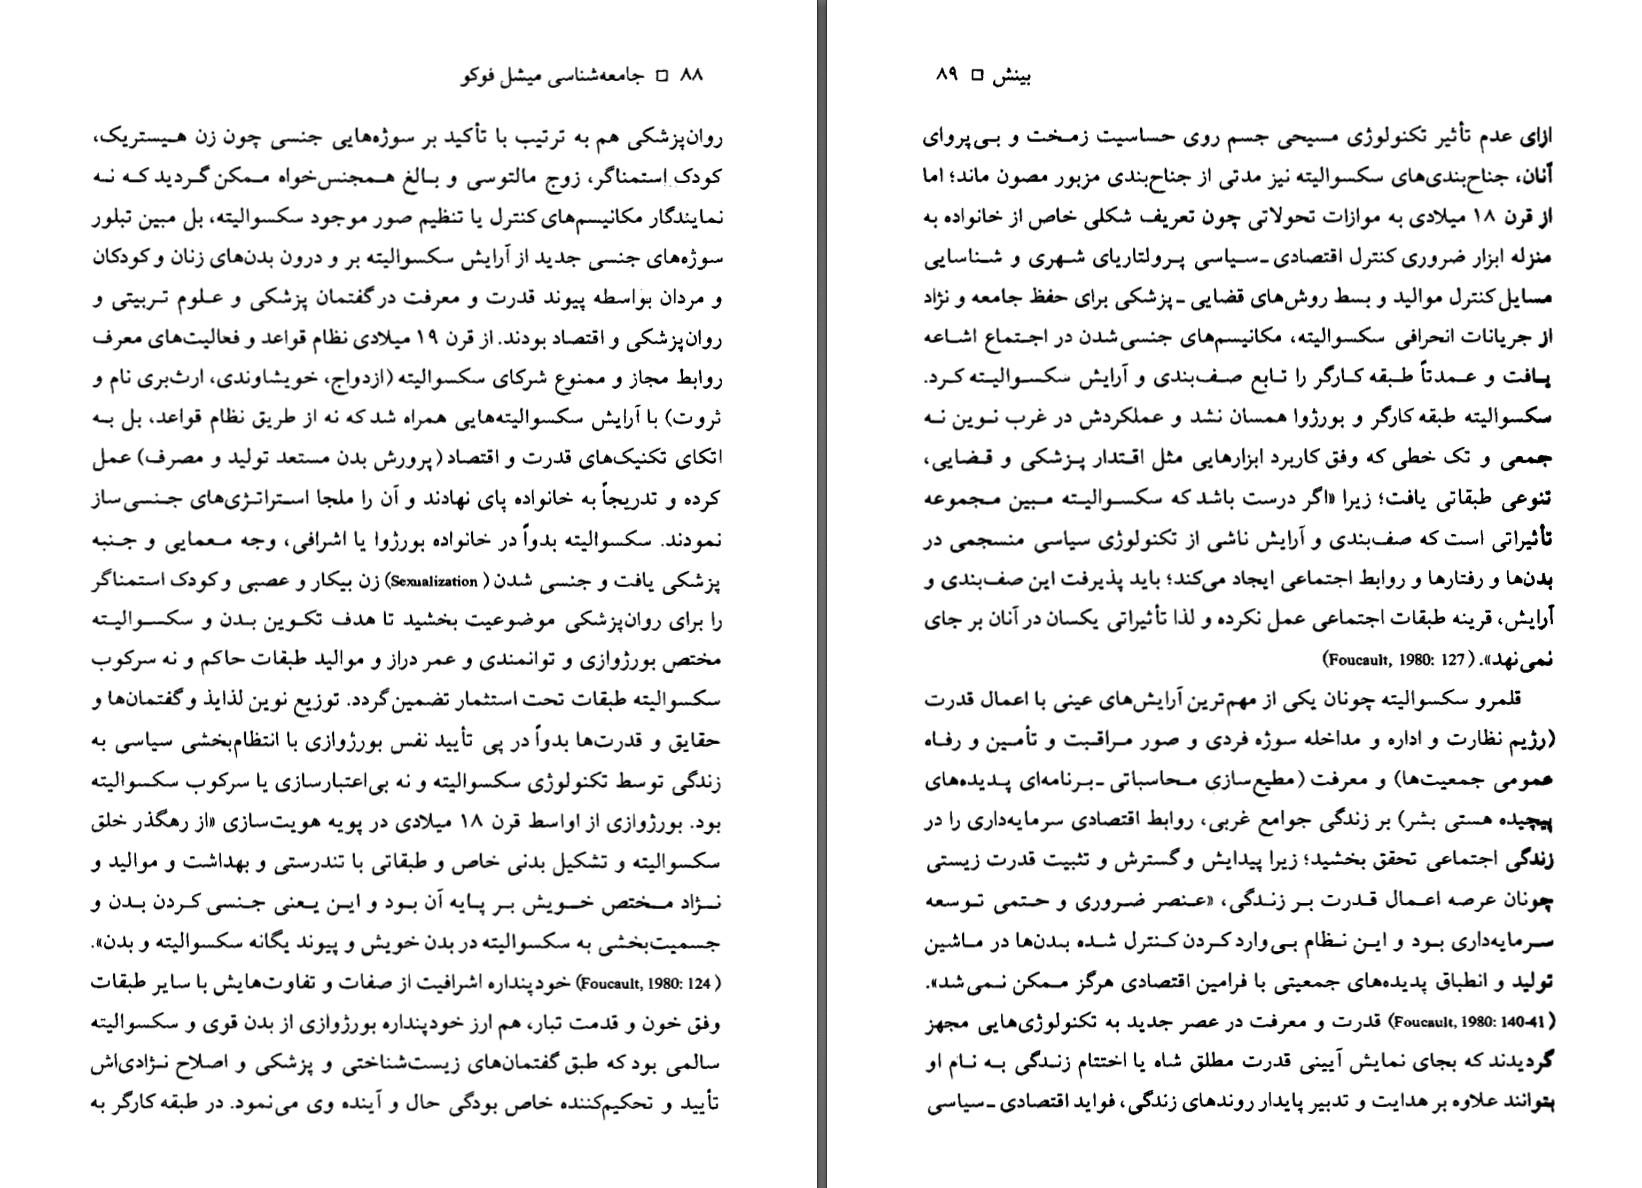 ۸۸ □ جامعه‌شناسی میشل فوکو
روان‌پزشکی هم به ترتیب با تأکید بر سوژه‌هایی جنسی چون زن هیستریک،
کودک استمناگر، زوج مالتوسی و بالغ همجنس‌خواه ممکن گردید که نه
نمایندگار مکانیسم‌های کنترل یا تنظیم صور موجود سکسوالیته، بل مبین تبلور
سوژه‌های جنسی جدید از آرایش سکسوالیته بر و درون بدن‌های زنان و کودکان
و مردان بواسطه پیوند قدرت و معرفت در گفتمان پزشکی و علوم تربیتی و
روان‌پزشکی و اقتصاد بودند. از قرن ۱۹ میلادی نظام قواعد و فعالیت‌های معرف
روابط مجاز و ممنوع شرکای سکسوالیته (ازدواج، خویشاوندی، ارث‌بری نام و
ثروت) با آرایش سکسوالیته‌هایی همراه شد که نه از طریق نظام قواعد، بل به
اتکای تکنیک‌های قدرت و اقتصاد (پرورش بدن مستعد تولید و مصرف) عمل
کرده و تدریجاً به خانواده پای نهادند و آن را ملجا استراتژی‌های جنسی‌ساز
نمودند. سکسوالیته بدواً در خانواده بورژوا یا اشرافی، وجه معمایی و جنبه
پزشکی یافت و جنسی شدن (Sexualization) زن بیکار و عصبی و کودک استمناگر
را برای روان‌پزشکی موضوعیت بخشید تا هدف تکوین بدن و سکسوالیته
مختص بورژوازی و توانمندی و عمر دراز و موالید طبقات حاکم و نه سرکوب
سکسوالیته طبقات تحت استثمار تضمین گردد. توزیع نوین لذایذ و گفتمان‌ها و
حقایق و قدرت‌ها بدواً در پی تأیید نفس بورژوازی با انتظام‌بخشی سیاسی به
زندگی توسط تکنولوژی سکسوالیته و نه بی‌اعتبارسازی یا سرکوب سکسوالیته
بود. بورژوازی از اواسط قرن ۱۸ میلادی در پویه هویت‌سازی «از رهگذر خلق
سکسوالیته و تشکیل بدنی خاص و طبقاتی با تندرستی و بهداشت و موالید و
نژاد مختص خویش بر پایه آن بود و این یعنی جنسی کردن بدن و
جسمیت‌بخشی به سکسوالیته در بدن خویش و پیوند یگانه سکسوالیته و بدن».
(Foucault, 1980: 124) خودپنداره اشرافیت از صفات و تفاوت‌هایش با سایر طبقات
وفق خون و قدمت تبار، هم ارز خودپنداره بورژوازی از بدن قوی و سکسوالیته
سالمی بود که طبق گفتمان‌های زیست‌شناختی و پزشکی و اصلاح نژادی‌اش
تأیید و تحکیم‌کننده خاص بودگی حال و آینده وی می‌نمود. در طبقه کارگر به
بینش □ ۸۹
ازای عدم تأثیر تکنولوژی مسیحی جسم روی حساسیت زمخت و بی‌پروای
آنان، جناح‌بندی‌های سکسوالیته نیز مدتی از جناح‌بندی مزبور مصون ماند؛ اما
از قرن ۱۸ میلادی به موازات تحولاتی چون تعریف شکلی خاص از خانواده به
منزله ابزار ضروری کنترل اقتصادی ـ سیاسی پرولتاریای شهری و شناسایی
مسایل کنترل موالید و بسط روش‌های قضایی ـ پزشکی برای حفظ جامعه و نژاد
از جریانات انحرافی سکسوالیته، مکانیسم‌های جنسی‌شدن در اجتماع اشاعه
یافت و عمدتاً طبقه کارگر را تابع صف‌بندی و آرایش سکسوالیته کرد.
سکسوالیته طبقه کارگر و بورژوا همسان نشد و عملکردش در غرب نوین نه
جمعی و تک خطی که وفق کاربرد ابزارهایی مثل اقتدار پزشکی و قضایی،
تنوعی طبقاتی یافت؛ زیرا «اگر درست باشد که سکسوالیته مبین مجموعه
تأثیراتی است که صف‌بندی و آرایش ناشی از تکنولوژی سیاسی منسجمی در
بدن‌ها و رفتارها و روابط اجتماعی ایجاد می‌کند؛ باید پذیرفت این صف‌بندی و
آرایش، قرینه طبقات اجتماعی عمل نکرده و لذا تأثیراتی یکسان در آنان بر جای
نمی‌نهد». (Foucault, 1980: 127)
قلمرو سکسوالیته چونان یکی از مهم‌ترین آرایش‌های عینی با اعمال قدرت
(رژیم نظارت و اداره و مداخله سوژه فردی و صور مراقبت و تأمین و رفاه
عمومی جمعیت‌ها) و معرفت (مطیع‌سازی محاسباتی ـ برنامه‌ای پدیده‌های
پیچیده هستی بشر) بر زندگی جوامع غربی، روابط اقتصادی سرمایه‌داری را در
زندگی اجتماعی تحقق بخشید؛ زیرا پیدایش و گسترش و تثبیت قدرت زیستی
چونان عرصه اعمال قدرت بر زندگی، «عنصر ضروری و حتمی توسعه
سرمایه‌داری بود و این نظام بی وارد کردن کنترل شده بدن‌ها در ماشین
تولید و انطباق پدیده‌های جمعیتی با فرامین اقتصادی هرگز ممکن نمی‌شد».
(Foucault, 1980: 140-41) قدرت و معرفت در عصر جدید به تکنولوژی‌هایی مجهز
گردیدند که بجای نمایش آیینی قدرت مطلق شاه یا اختتام زندگی به نام او
بتوانند علاوه بر هدایت و تدبیر پایدار روندهای زندگی، فواید اقتصادی ـ سیاسی